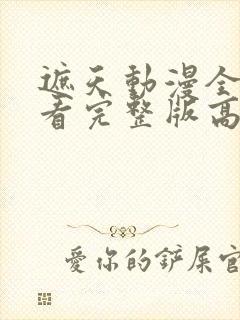 遮天動漫全
看完整版高
愛你的鏟屎官